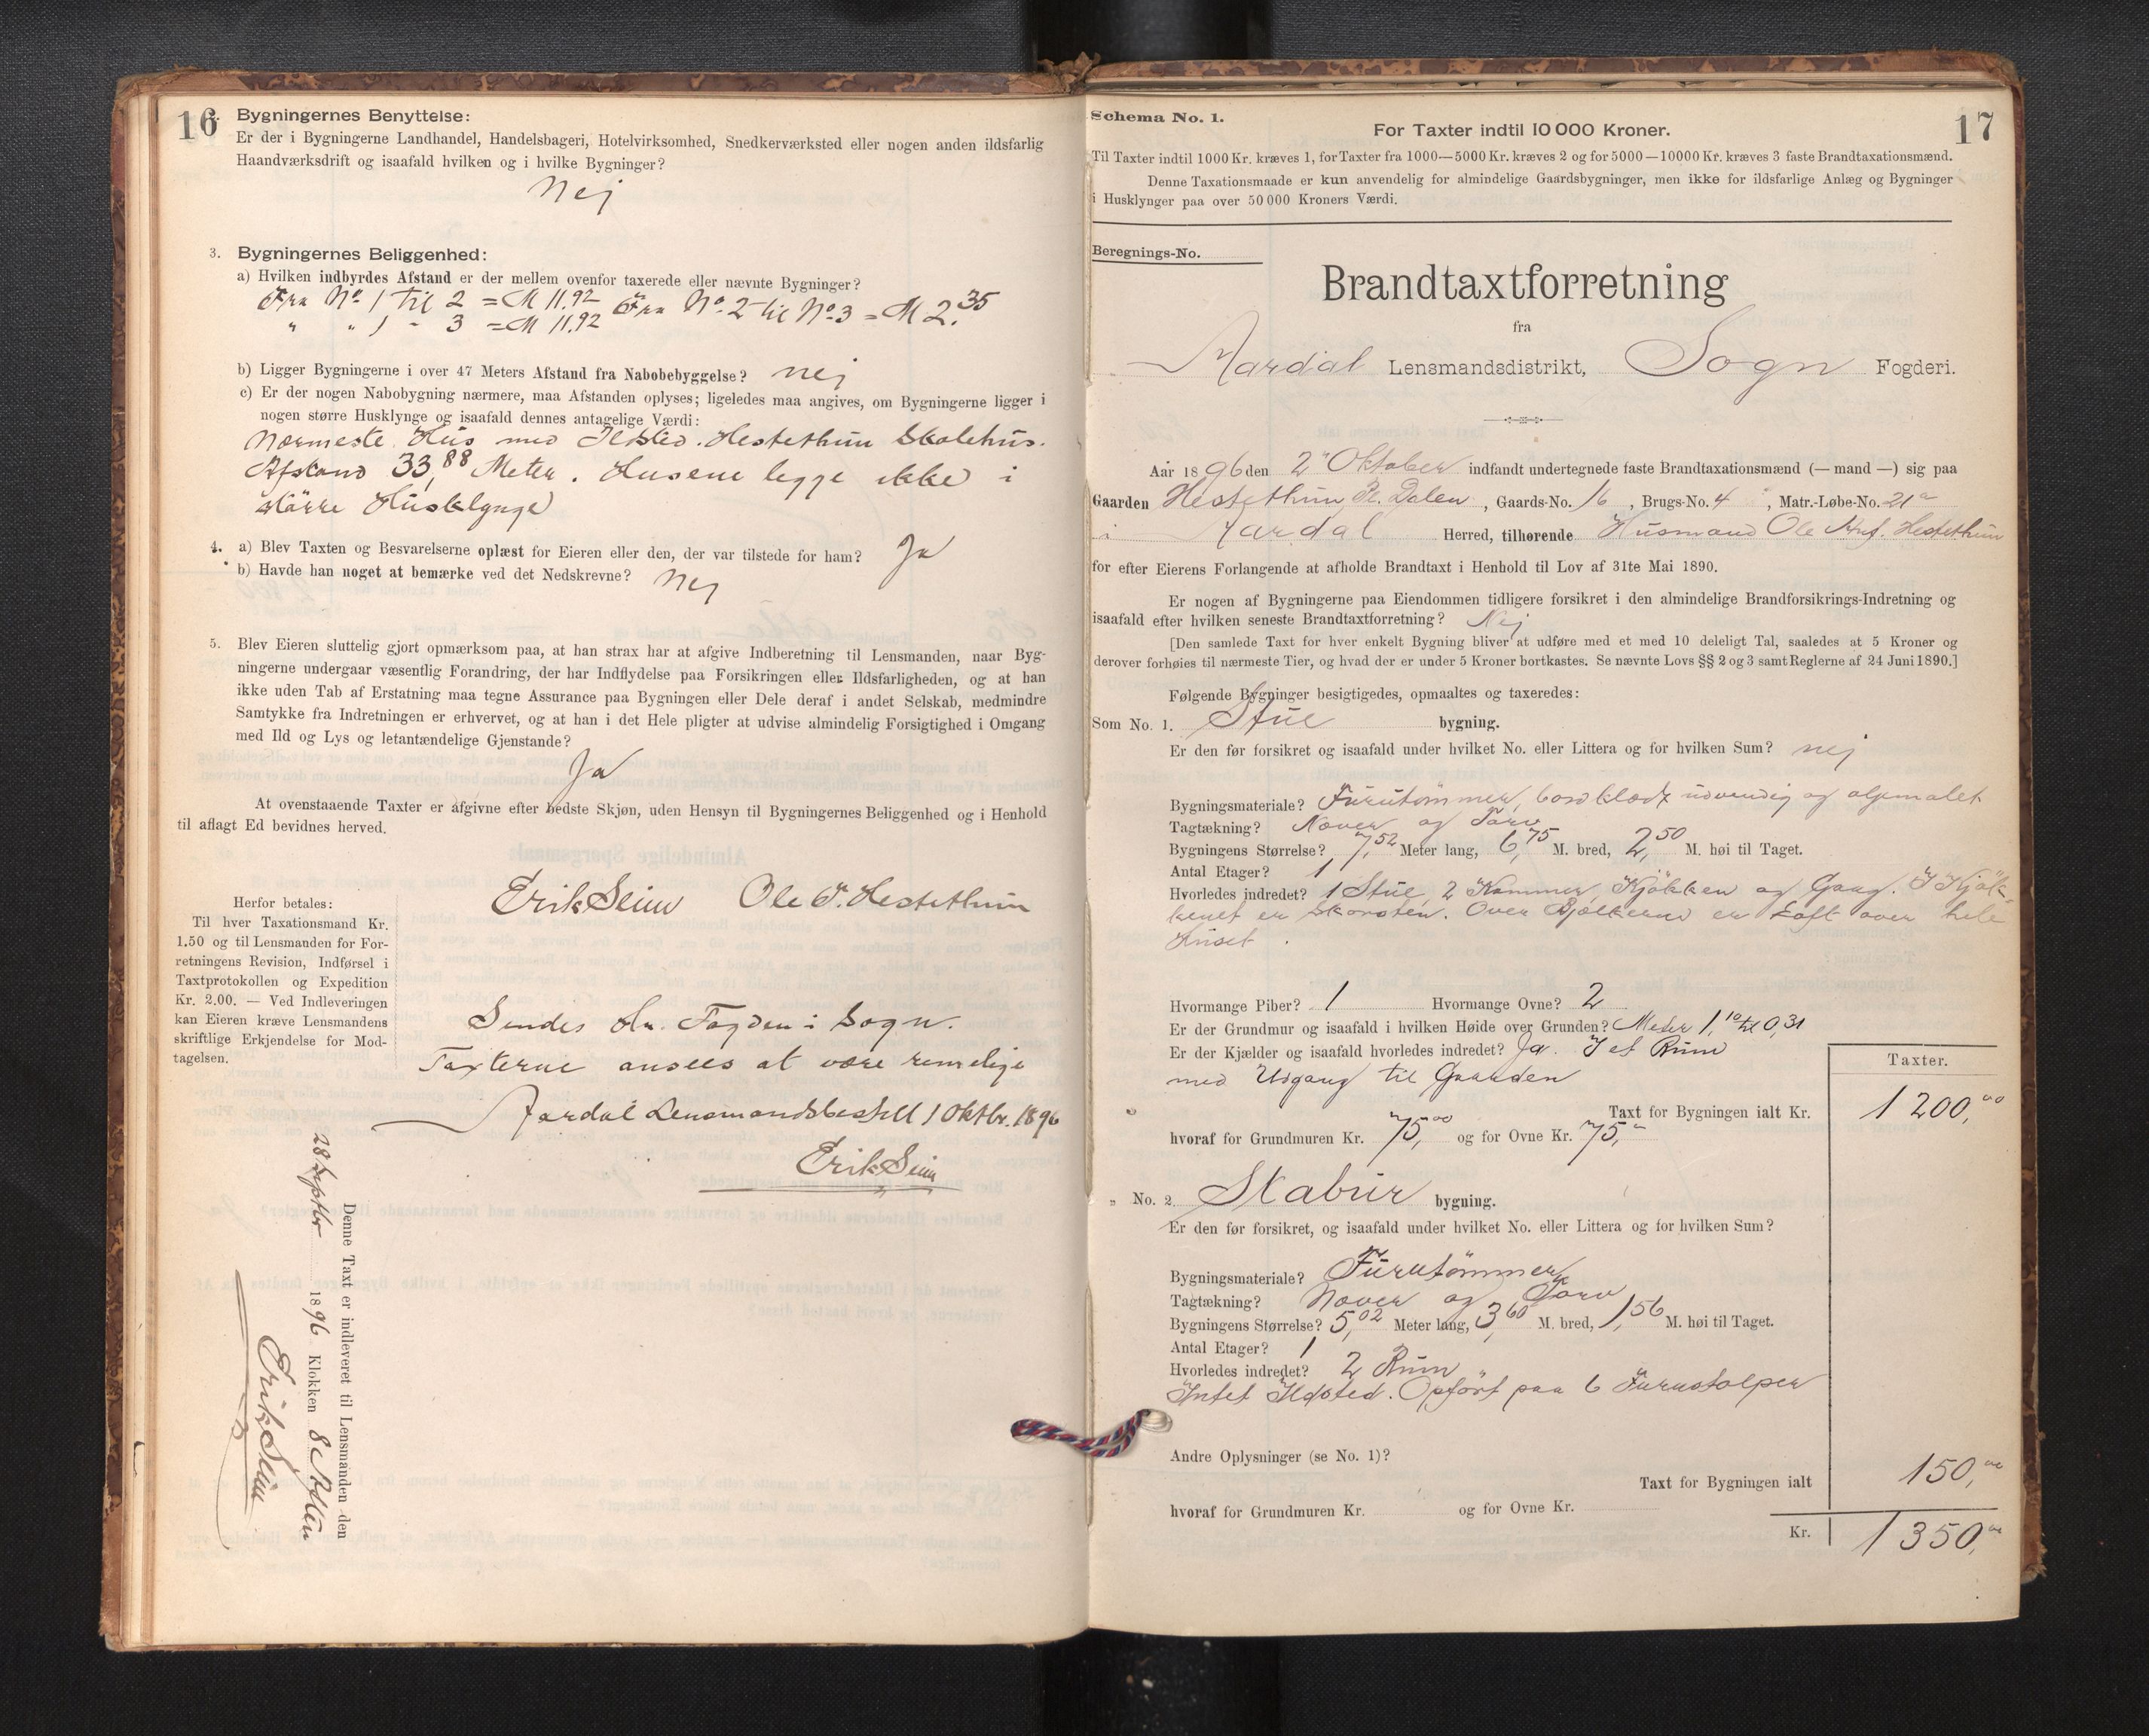 16
2. Bygningernes Benyttelse:
Er der i Bygningerne Landhandel, Handelsbageri, Hotelvirksomhed, Snedkerværksted eller nogen anden ildsfarlig
Haandværksdrift og isaafald hvilken og i hvilke Bygninger?
Nej
3. Bygningernes Beliggenhed:
a) Hvilken indbyrdes Afstand er der mellem ovenfor taxerede eller nævnte Bygninger?
Fra No 1 til 2 = M 11.92 Fra No 2 til No 3 = M 2.35
" " 1 - 3 = M 11.92
b) Ligger Bygningerne i over 47 Meters Afstand fra Nabobebyggelse? nej
c) Er der nogen Nabobygning nærmere, maa Afstanden oplyses; ligeledes maa angives, om Bygningerne ligger i
nogen større Husklynge og isaafald dennes antagelige Værdi:
Nærmeste Hus med Ildsted. Hestethun Skolehus.
Afstand 33,88 Meter. Husene legge ikke i
större Husklynge
4. a) Blev Taxten og Besvarelserne oplæst for Eieren eller den, der var tilstede for ham? Ja
b) Havde han noget at bemærke ved det Nedskrevne? Nej
5. Blev Eieren sluttelig gjort opmærksom paa, at han strax har at afgive Indberetning til Lensmanden, naar Byg-
ningerne undergaar væsentlig Forandring, der har Indflydelse paa Forsikringen eller Ildsfarligheden, og at han
ikke uden Tab af Erstatning maa tegne Assurance paa Bygningen eller Dele deraf i andet Selskab, medmindre
Samtykke fra Indretningen er erhvervet, og at han i det Hele pligter at udvise almindelig Forsigtighed i Omgang
med Ild og Lys og letantændelige Gjenstande?
Ja
At ovenstaaende Taxter er afgivne efter bedste Skjøn, uden Hensyn til Bygningernes Beliggenhed og i Henhold
til aflagt Ed bevidnes herved.
Erik Seim Ole T. Hestethun
Herfor betales:
Til hver Taxationsmand Kr.
1.50 og til Lensmanden for For-
retningens Revision, Indførsel i
Taxtprotokollen og Expedition
Kr. 2.00. — Ved Indleveringen
kan Eieren kræve Lensmandens
skriftlige Erkjendelse for Mod-
tagelsen.
Sendes Hr. Fogden i Sogn.
Taxterne ansees at være rimelige
Aardal Lensmandsbestell 1 Oktbr. 1896
Erik Seim
Denne Taxt er indleveret til Lensmanden den
28 Septbr 1896 Klokken 8 Aften
Erik Seim
17
Schema No. 1.
For Taxter indtil 10 000 Kroner.
Til Taxter indtil 1000 Kr. kræves 1, for Taxter fra 1000—5000 Kr. kræves 2 og for 5000—10000 Kr. kræves 3 faste Brandtaxationsmænd.
Denne Taxationsmaade er kun anvendelig for almindelige Gaardsbygninger, men ikke for ildsfarlige Anlæg og Bygninger
i Husklynger paa over 50 000 Kroners Værdi.
Beregnings-No.
Brandtaxtforretning
fra
Aardal Lensmandsdistrikt, Sogn Fogderi.
Aar 1896 den 2 Oktober indfandt undertegnede faste Brandtaxationsmænd (— mand —) sig paa
Gaarden Hestethun, Pl. Dalen, Gaards-No. 16, Brugs-No. 4, Matr.-Løbe-No. 21a
i Aardal Herred, tilhørende Husmand Ole Hestethun
for efter Eierens Forlangende at afholde Brandtaxt i Henhold til Lov af 31te Mai 1890.
Er nogen af Bygningerne paa Eiendommen tidligere forsikret i den almindelige Brandforsikrings-Indretning og
isaafald efter hvilken seneste Brandtaxtforretning? Nej
[Den samlede Taxt for hver enkelt Bygning bliver at udføre med et med 10 deleligt Tal, saaledes at 5 Kroner og
derover forhøies til nærmeste Tier, og hvad der er under 5 Kroner bortkastes. Se nævnte Lovs §§ 2 og 3 samt Reglerne af 24 Juni 1890.]
Følgende Bygninger besigtigedes, opmaaltes og taxeredes:
Som No. 1. Stue bygning.
Er den før forsikret og isaafald under hvilket No. eller Littera og for hvilken Sum? nej
Bygningsmateriale? Furutömmer, bordklædt udvendig og oljemalet
Tagtækning? Næver og Torv
Bygningens Størrelse? 7,52 Meter lang, 6,75 M. bred, 2,50 M. høi til Taget.
Antal Etager? 1
Hvorledes indredet? 1 Stue, 2 Kammer, Kjökken og Gang. I Kjök-
kenet er Skorsten. Over Bjælkerne er Loft over hele
Huset.
Hvormange Piber? 1 Hvormange Ovne? 2
Er der Grundmur og isaafald i hvilken Høide over Grunden? Meter 1,10 til 0,31
Er der Kjælder og isaafald hvorledes indredet? Ja. I et Rum
med Udgang til Gaarden
Taxter.
Taxt for Bygningen ialt Kr. 1200,00
hvoraf for Grundmuren Kr. 75,00 og for Ovne Kr. 75,"
" No. 2 Stabur bygning.
Er den før forsikret, og isaafald under hvilket No. eller Littera og for hvilken Sum?
Bygningsmateriale? Furutömmer
Tagtækning? Næver og Torv
Bygningens Størrelse? 5,02 Meter lang, 3,60 M. bred, 1,56 M. høi til Taget.
Antal Etager? 1
Hvorledes indredet? 2 Rum
Intet Ildsted. Opfört paa 6 Furustolper
Andre Oplysninger (se No. 1)?
Taxt for Bygningen ialt 150,00
hvoraf for Grundmuren Kr. og for Ovne Kr.
Kr. 1350,00